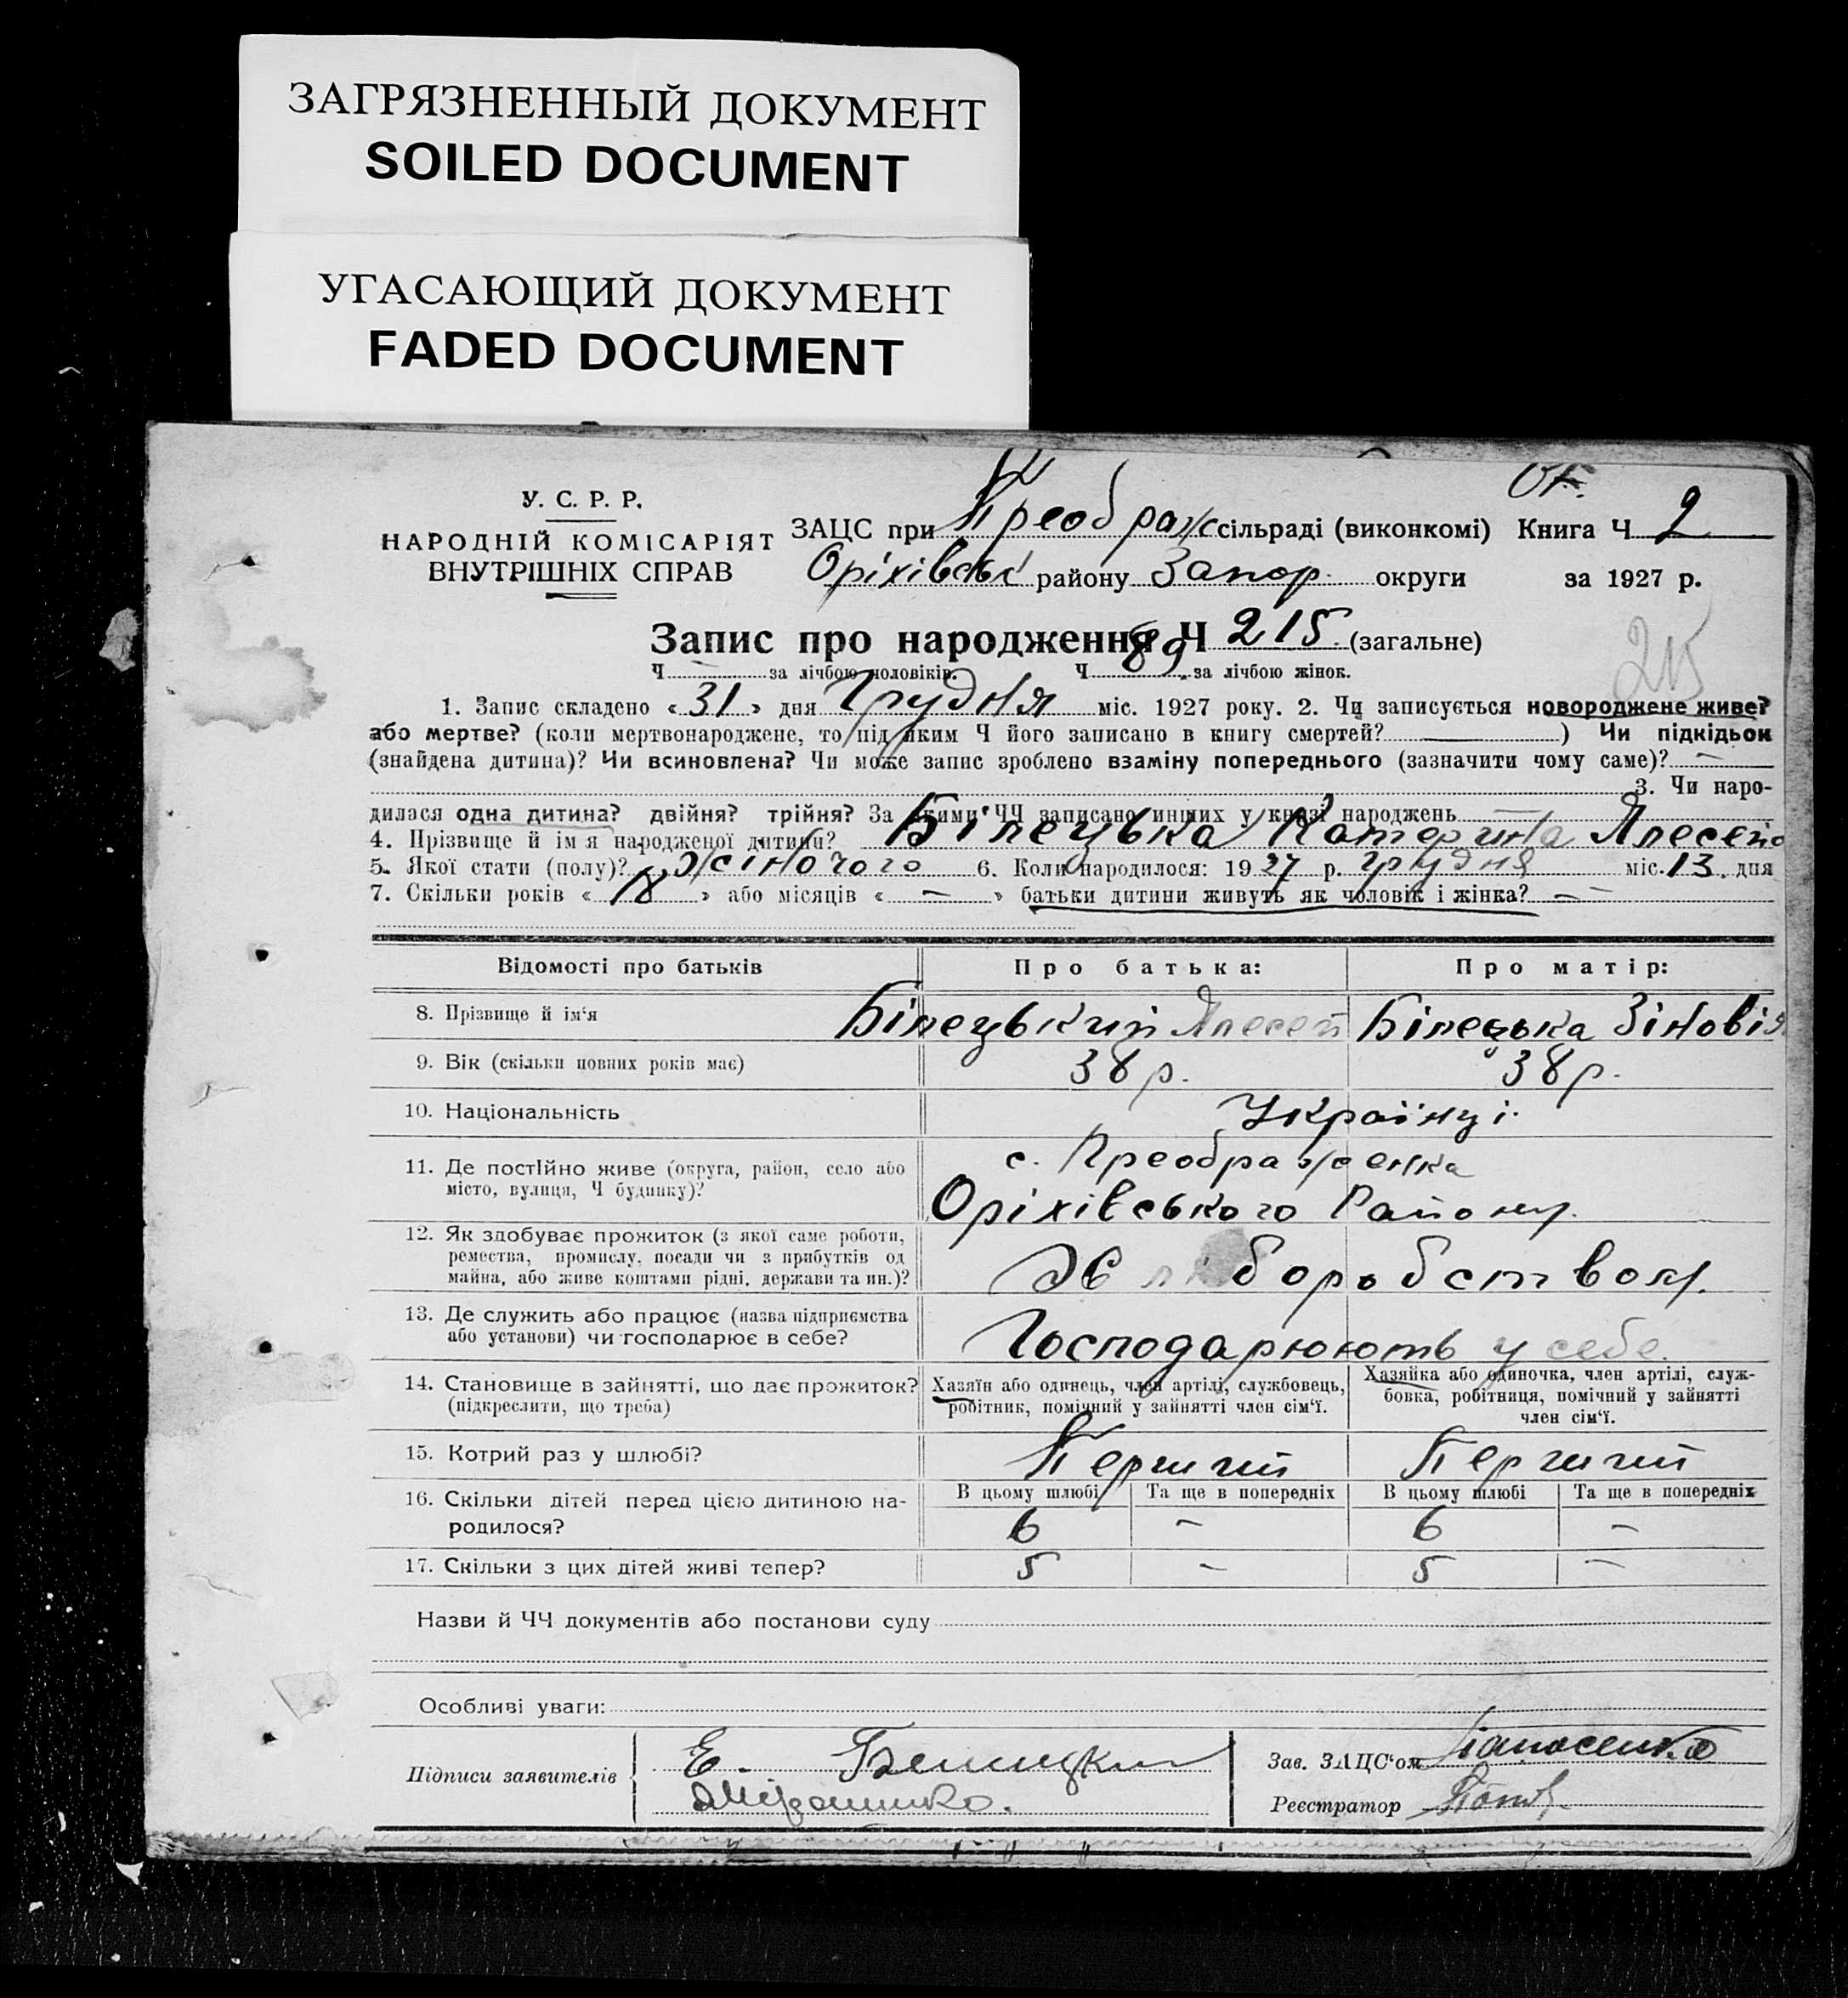 ЗАГРЯЗНЕННЫЙ ДОКУМЕНТ
SOILED DOCUMENT
УГАСАЮЩИЙ ДОКУМЕНТ
FADED DOCUMENT
У. С. Р. Р.
НАРОДНІЙ КОМІСАРІЯТ
ВНУТРІШНІХ СПРАВ
ЗАЦС при Преображ сільраді (виконкомі) Книга Ч 2
Оріхівськ району Запор. округи за 1927 р.
Запис про народження Ч 215 (загальне)
215
Ч — за лічбою чоловіків. Ч 89 за лічбою жінок.
1. Запис складено « 31 » дня Грудня міс. 1927 року. 2. Чи записується новороджене живе?
або мертве? (коли мертвонароджене, то під яким Ч його записано в книгу смертей? — ) Чи підкідьок
(знайдена дитина)? Чи всиновлена? Чи може запис зроблено взаміну попереднього (зазначити чому саме)? —
3. Чи наро-
дилася одна дитина? двійня? трійня? За якими ЧЧ записано инших у книзі народжень —
4. Прізвище й ім'я народженої дитини? Білецька Катерина
5. Якої стати (полу)? Жіночого 6. Коли народилося: 1927 р. грудня міс. 13. дня
7. Скільки років « 18 » або місяців « — » батьки дитини живуть як чоловік і жінка? —
Відомості про батьків Про батька: Про матір:
8. Прізвище й ім'я Білецький Білецька Зіновія
9. Вік (скільки повних років має) 38 р. 38 р.
10. Національність Українці.
11. Де постійно живе (округа, район, село або
місто, вулиця, Ч будинку)?
с. Преображенка
Оріхівського Району.
12. Як здобуває прожиток (з якої саме роботи,
ремества, промислу, посади чи з прибутків од
майна, або живе коштами рідні, держави та ин.)?
Хліборобством.
13. Де служить або працює (назва підприємства
або установи) чи господарює в себе?
Господарюють у себе.
14. Становище в зайнятті, що дає прожиток?
(підкреслити, що треба)
Хазяїн або одинець, член артілі, службовець,
робітник, помічний у зайнятті член сім'ї.
Хазяйка або одиночка, член артілі, служ-
бовка, робітниця, помічний у зайнятті
член сім'ї.
15. Котрий раз у шлюбі? Перший Перший
16. Скільки дітей перед цією дитиною на-
родилося?
В цьому шлюбі Та ще в попередніх В цьому шлюбі Та ще в попередніх
6 — 6 —
17. Скільки з цих дітей живі тепер? 5 — 5 —
Назви й ЧЧ документів або постанови суду
Особливі уваги:
Підписи заявителів
Е.
Зав. ЗАЦС'ом
Реєстратор